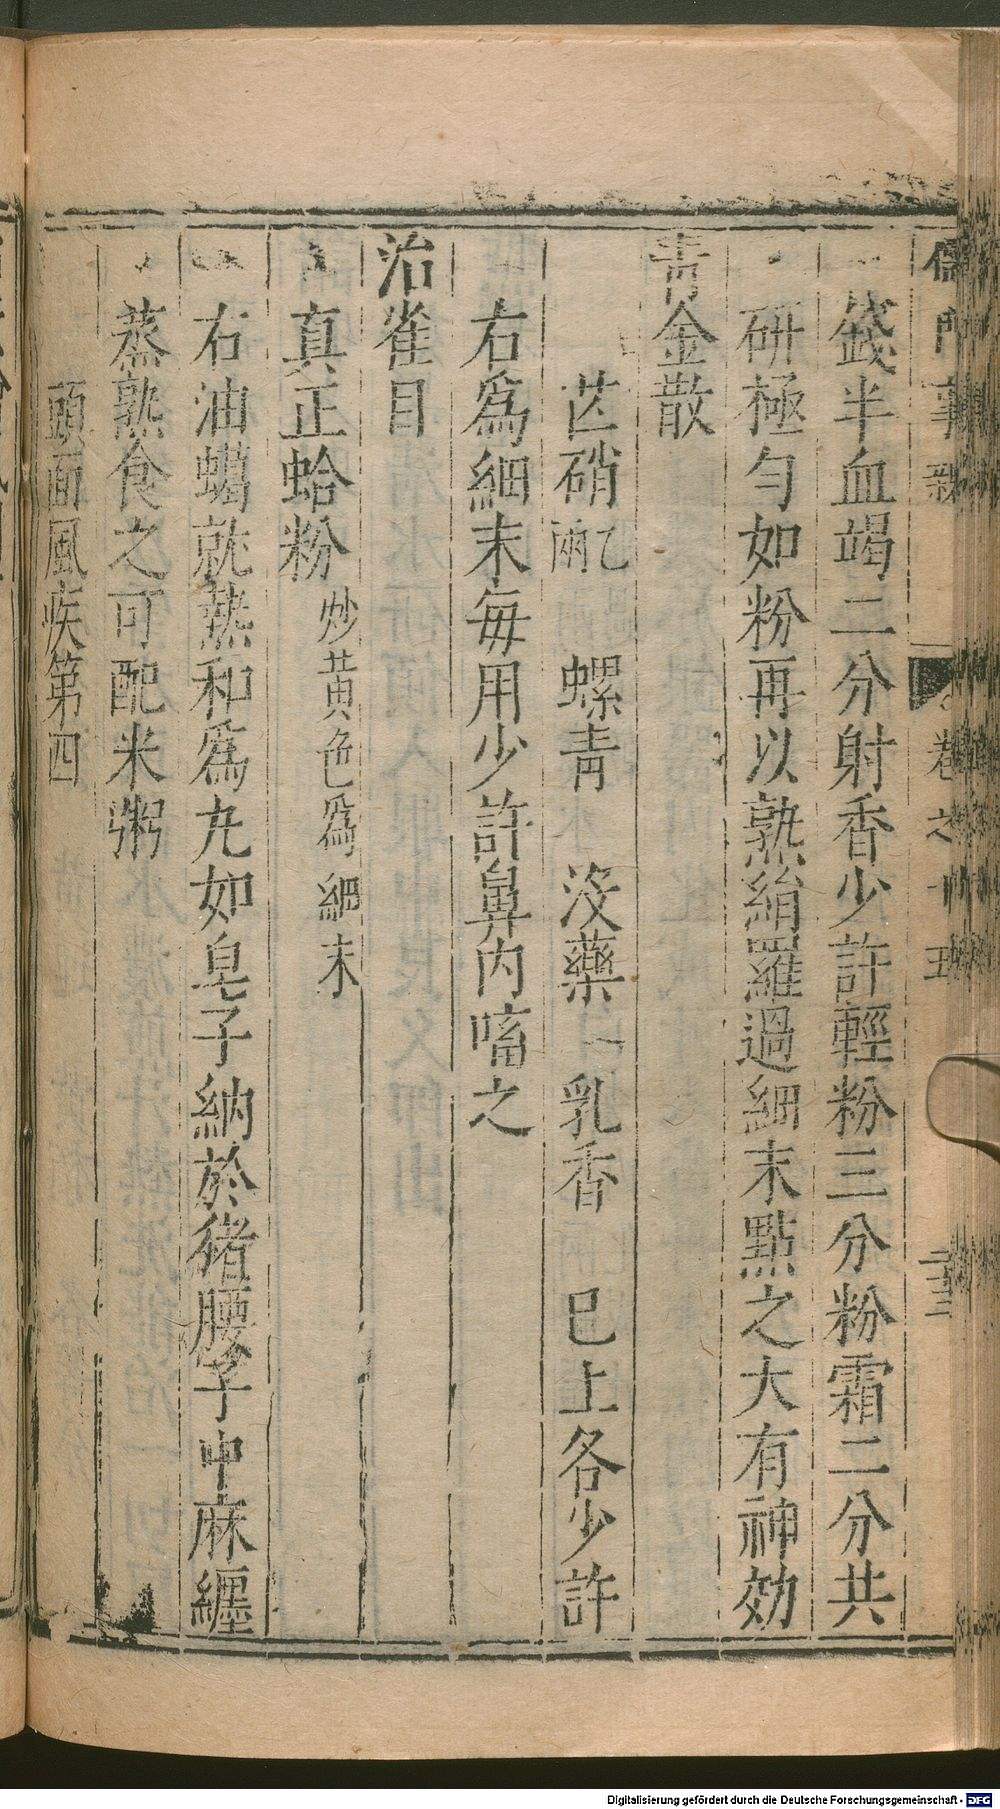 儒門事親 卷之十五
錢半血竭二分射香少許輕粉三分粉霜二分共
研極勻如粉再以熟絹羅過細末點之大有神効
青金散
芒硝 乙兩 螺青 沒藥 乳香 巳上各少許
右爲細末每用少許鼻內㗜之
治雀目
真正蛤粉 炒黃色爲細末
右油蠟就熱和爲丸如皂子納於猪腰子中麻纏
蒸熟食之可配米粥
頭面風疾第四
Digitalisierung gefördert durch die Deutsche Forschungsgemeinschaft - DFG